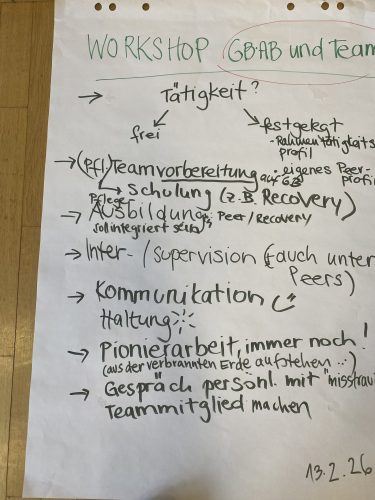 WORKSHOP GB·AB und Team
→ Tätigkeit?
frei
festgelegt
- Rahmentätigkeits
profil
→ (Pfl.) Teamvorbereitung auf GB
- eigenes Peer-
profil
Pfleger
→ Schulung (z.B. Recovery)
→ Ausbildung: Peer/Recovery
soll integriert sein
→ Inter- / Supervision (auch unter
Peers)
→ Kommunikation
Haltung
→ Pionierarbeit, immer noch!
(aus der verbrannten Erde aufstehen...)
→ Gespräch persönl. mit "misstrau
Teammitglied machen
13.2.26